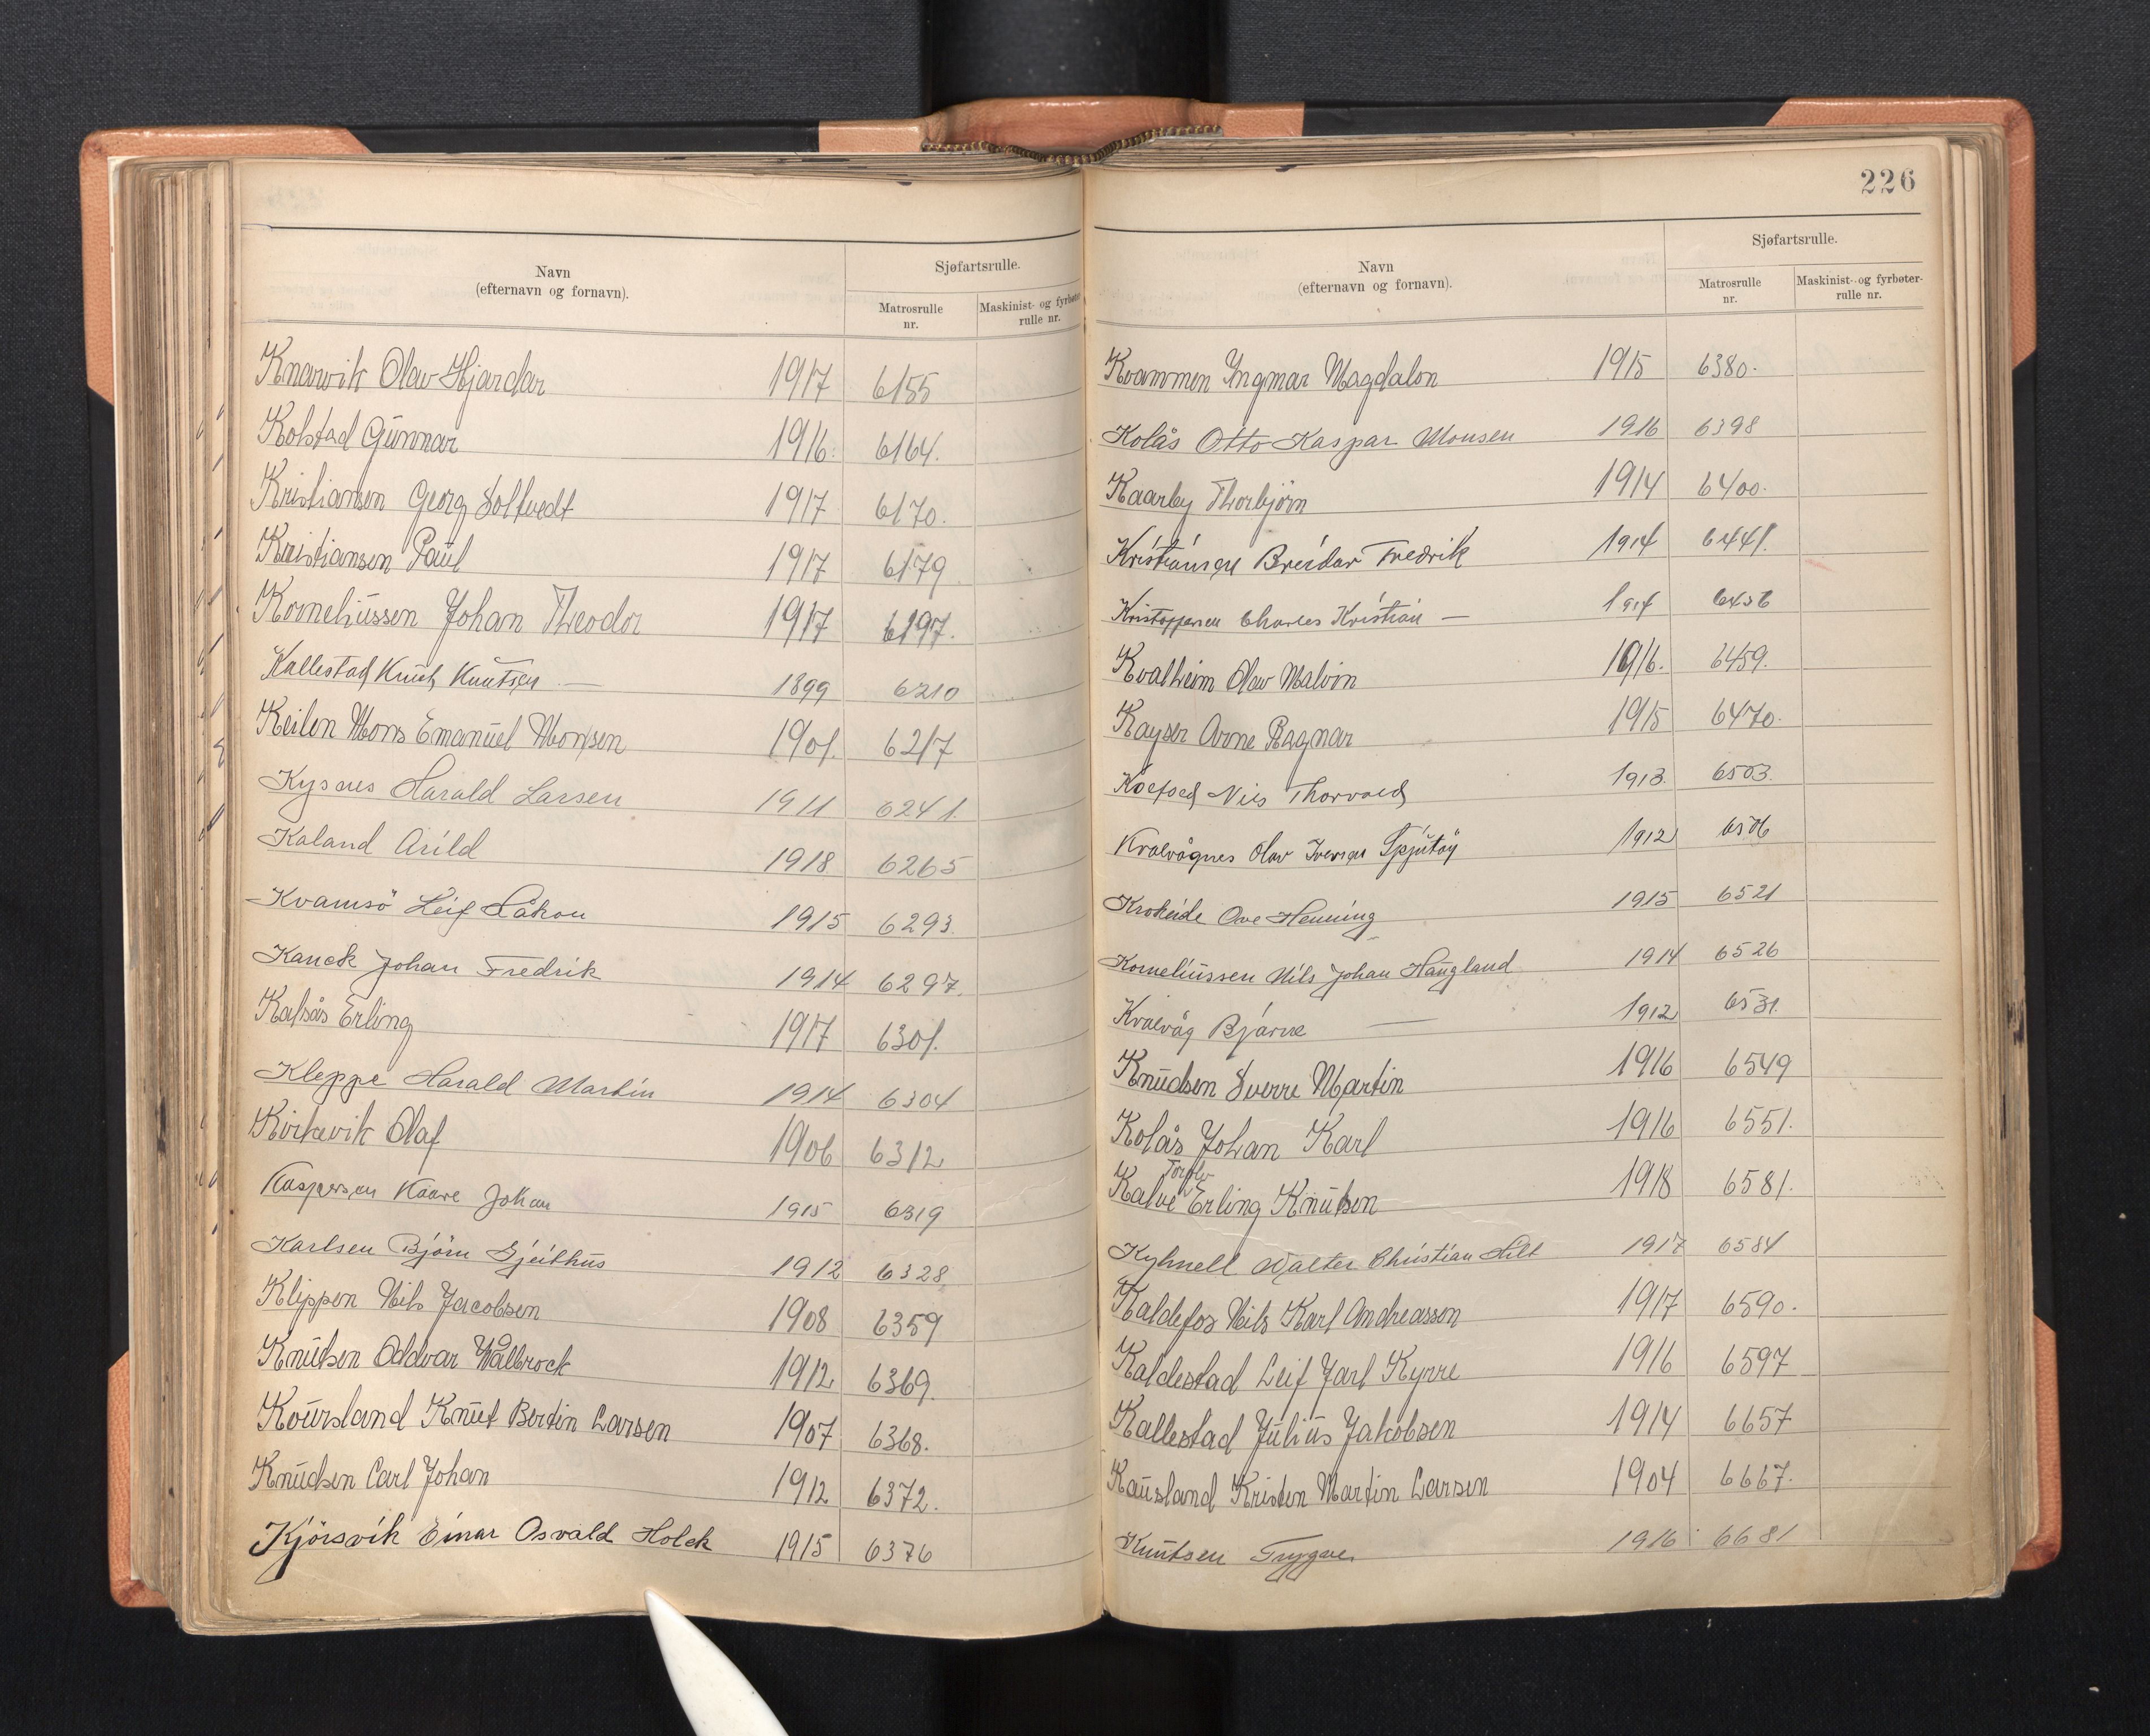 Navn
(efternavn og fornavn).
Sjøfartsrulle.
Matrosrulle
nr.
Maskinist- og fyrbøter-
rulle nr.
Knarvik Olav Hjardar 1917 6155
Kolstad Gunnar 1916. 6164.
Kristiansen Georg Soltvedt 1917 6170.
Kristiansen Paul 1917 6179
Korneliussen Johan Theodor 1917 6197.
Kallestad Knut Knutsen — 1899 6210
Keilen Mons Emanuel Monsen 1901. 6217
Kysnes Harald Larsen 1911 6241.
Kaland Arild 1918 6265
Kvamsö Leif Håkon 1915 6293.
Kauck Johan Fredrik 1914 6297.
Kalsås Erling 1917 6301.
Kleppe Harald Martin 1914 6304
Kirkevik Olaf 1906 6312
Kaspersen Kaare Johan 1915 6319
Karlsen Björn Gjeithus 1912 6328.
Klippen Nils Jacobsen 1908 6359
Knutsen Oddvar Walbrock 1912 6369.
Koursland Knut Bertin Larsen 1907 6368.
Knudsen Carl Johan 1912 6372.
Kjörsvik Einar Osvald Holck 1915 6376
226
Navn
(efternavn og fornavn).
Sjøfartsrulle.
Matrosrulle
nr.
Maskinist- og fyrbøter-
rulle nr.
Kvammen Ingmar Magdalon 1915 6380.
Kolås Otto Kaspar Monsen 1916 6398
Kaarby Thorbjörn 1914 6400.
Kristiansen Breidar Fredrik 1914 6441.
Kristoffersen Charles Kristian — 1914 6456
Kvalheim Olav Malvin 1916. 6459.
Kayser Arne Ragnar 1915 6470.
Koefoed Nils Thorvald 1913. 6503.
Kvalvågnes Olav Iversen Spjutöy 1912 6506
Krokeide Ove Henning 1915 6521
Korneliussen Nils Johan Haugland 1914 6526
Kvalvåg Bjarne — 1912 6531.
Knudsen Sverre Martin 1916 6549
Kolås Johan Karl 1916 6551.
Torolv
Kalve Erling Knutsen 1918 6581.
Kyhnell Walter Christian Hilt 1917 6584
Kaldefos Nils Karl Andreassen 1917 6590.
Kaldestad Leif Jarl Kyrre 1916 6597
Kallestad Julius Jakobsen 1914 6657
Kausland Kristen Martin Larsen 1904 6667.
Knutsen Trygve 1916 6681